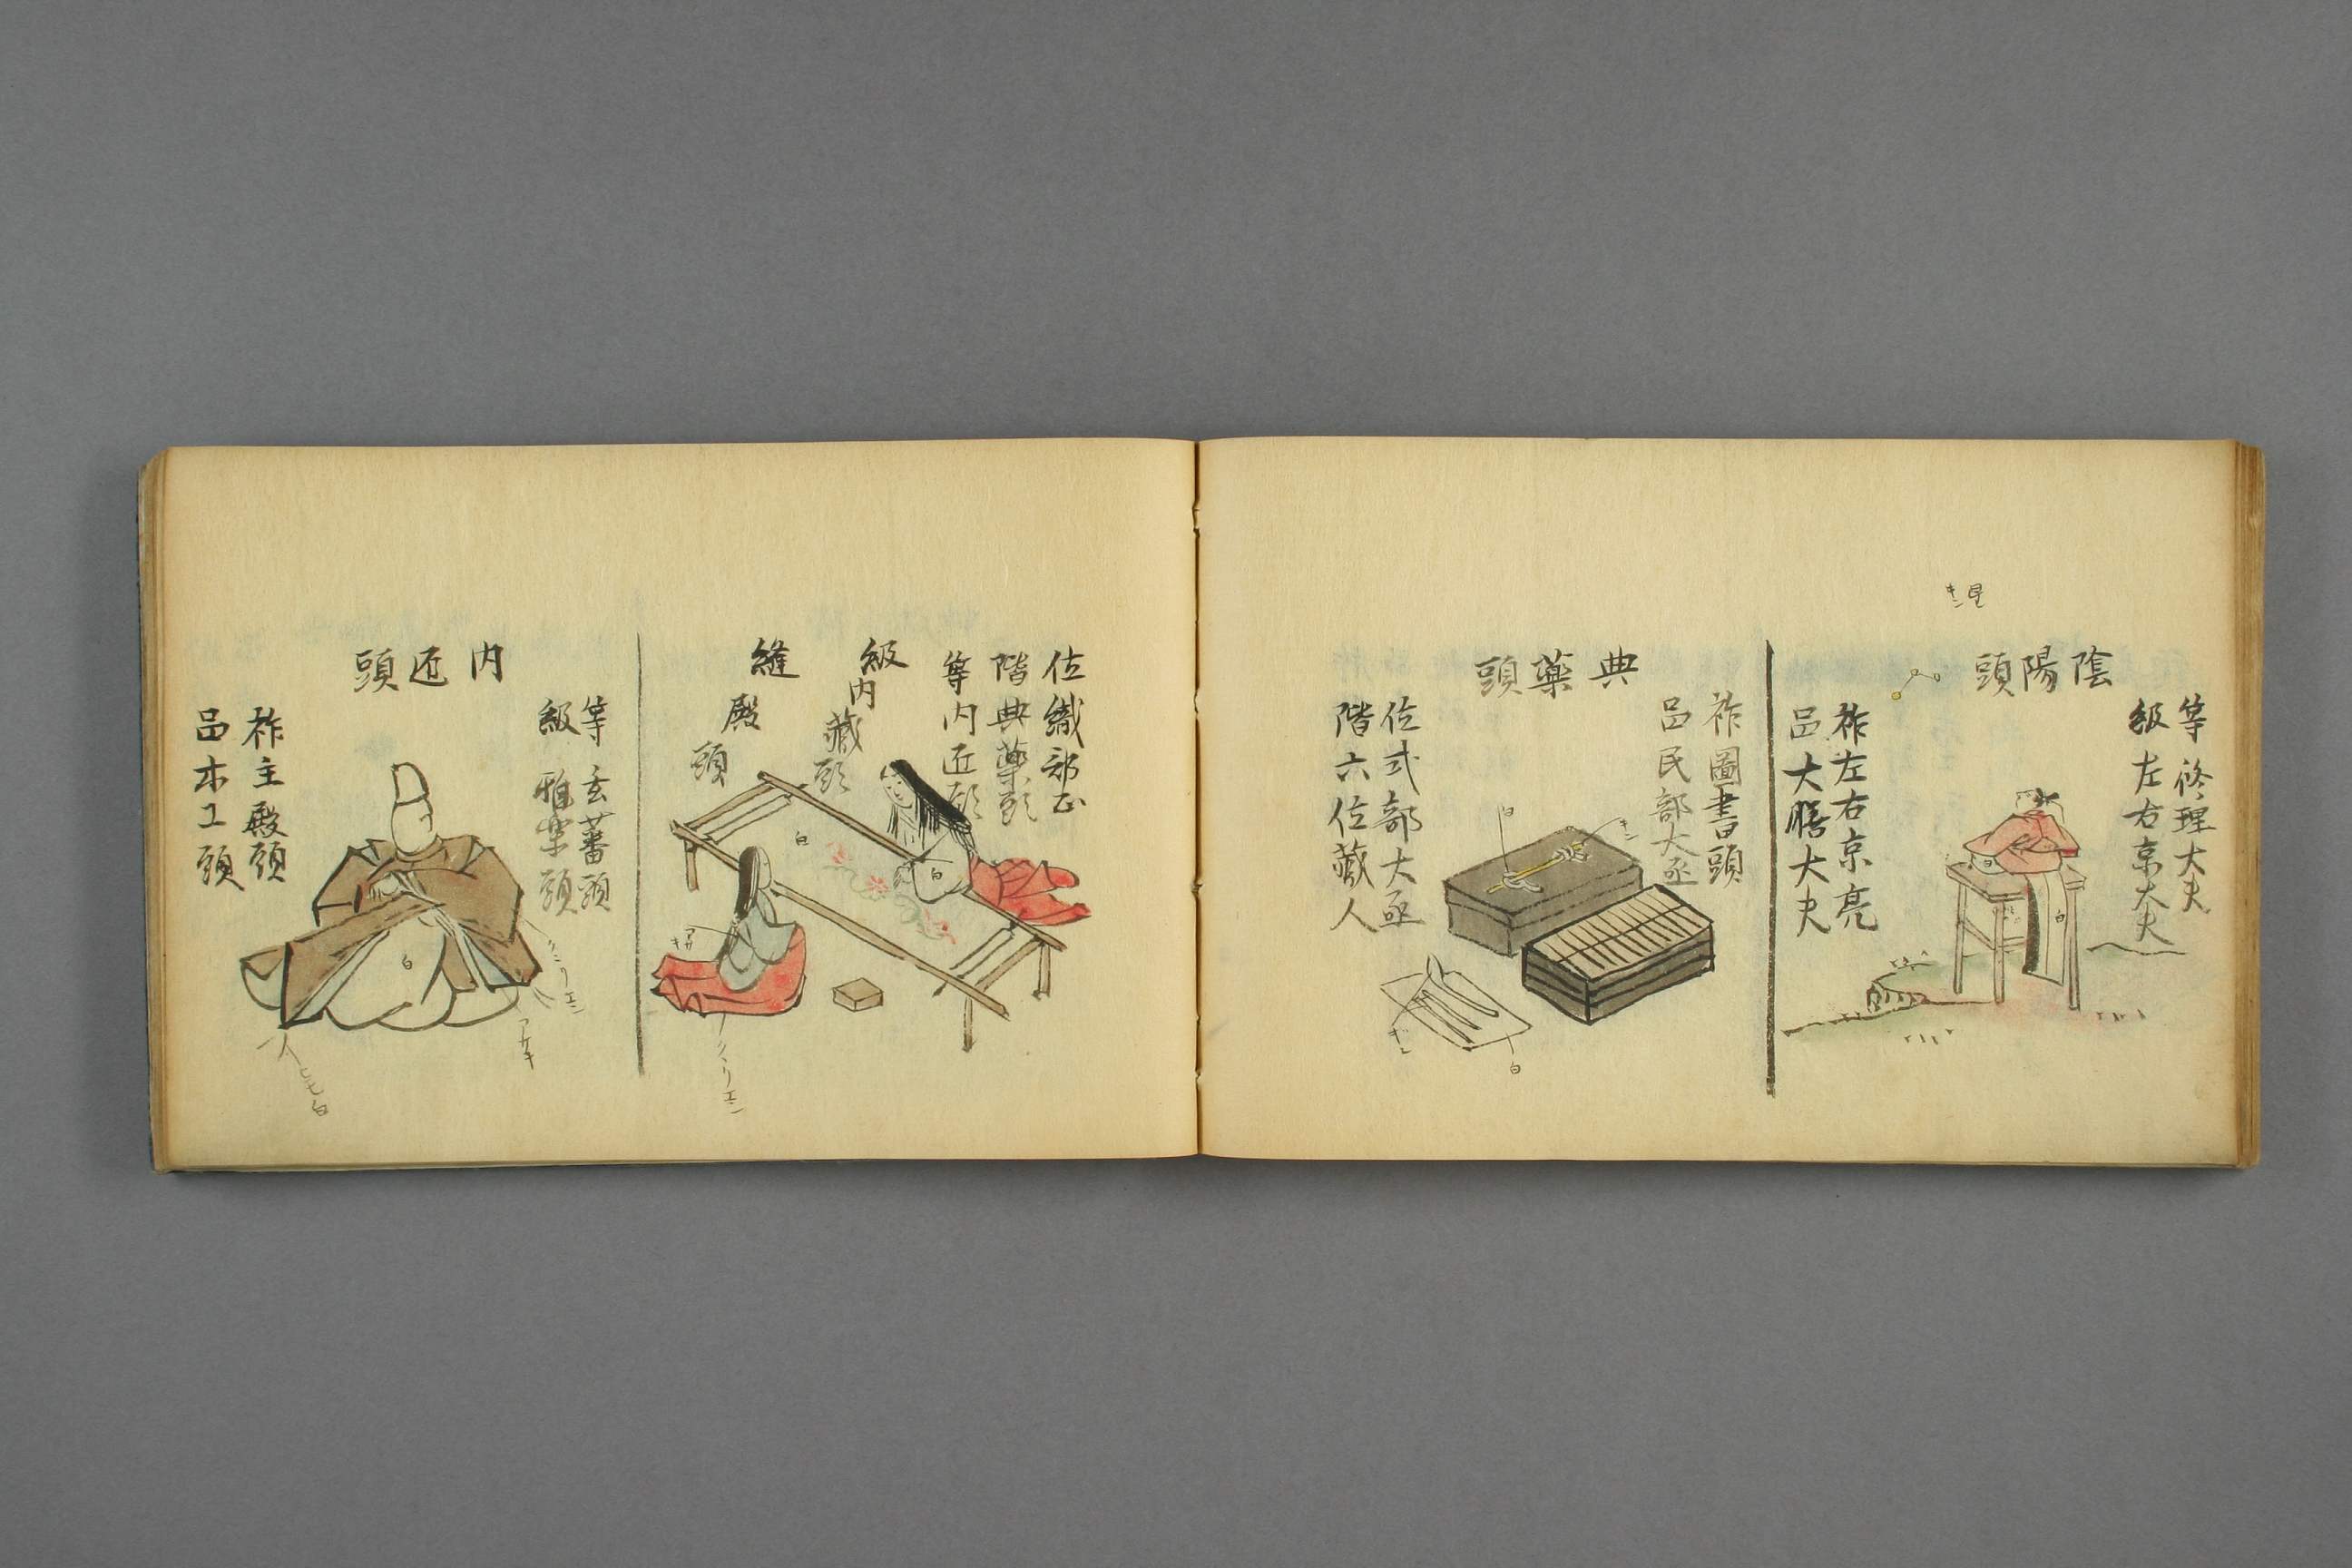 陰陽頭
等 修理大夫
級 左右京大夫
祚 左右京亮
品 大膳大夫
星
キン
白
白
典藥頭
祚 圖書頭
品 民部大丞
位 式部大丞
階 六位藏人
白
キン
キン
白
縫殿頭
位 織部正
階 典藥頭
等 内匠頭
級 内藏頭
白
白
内匠頭
等 玄蕃頭
級 雅楽頭
祚 主殿頭
品 木工頭
白